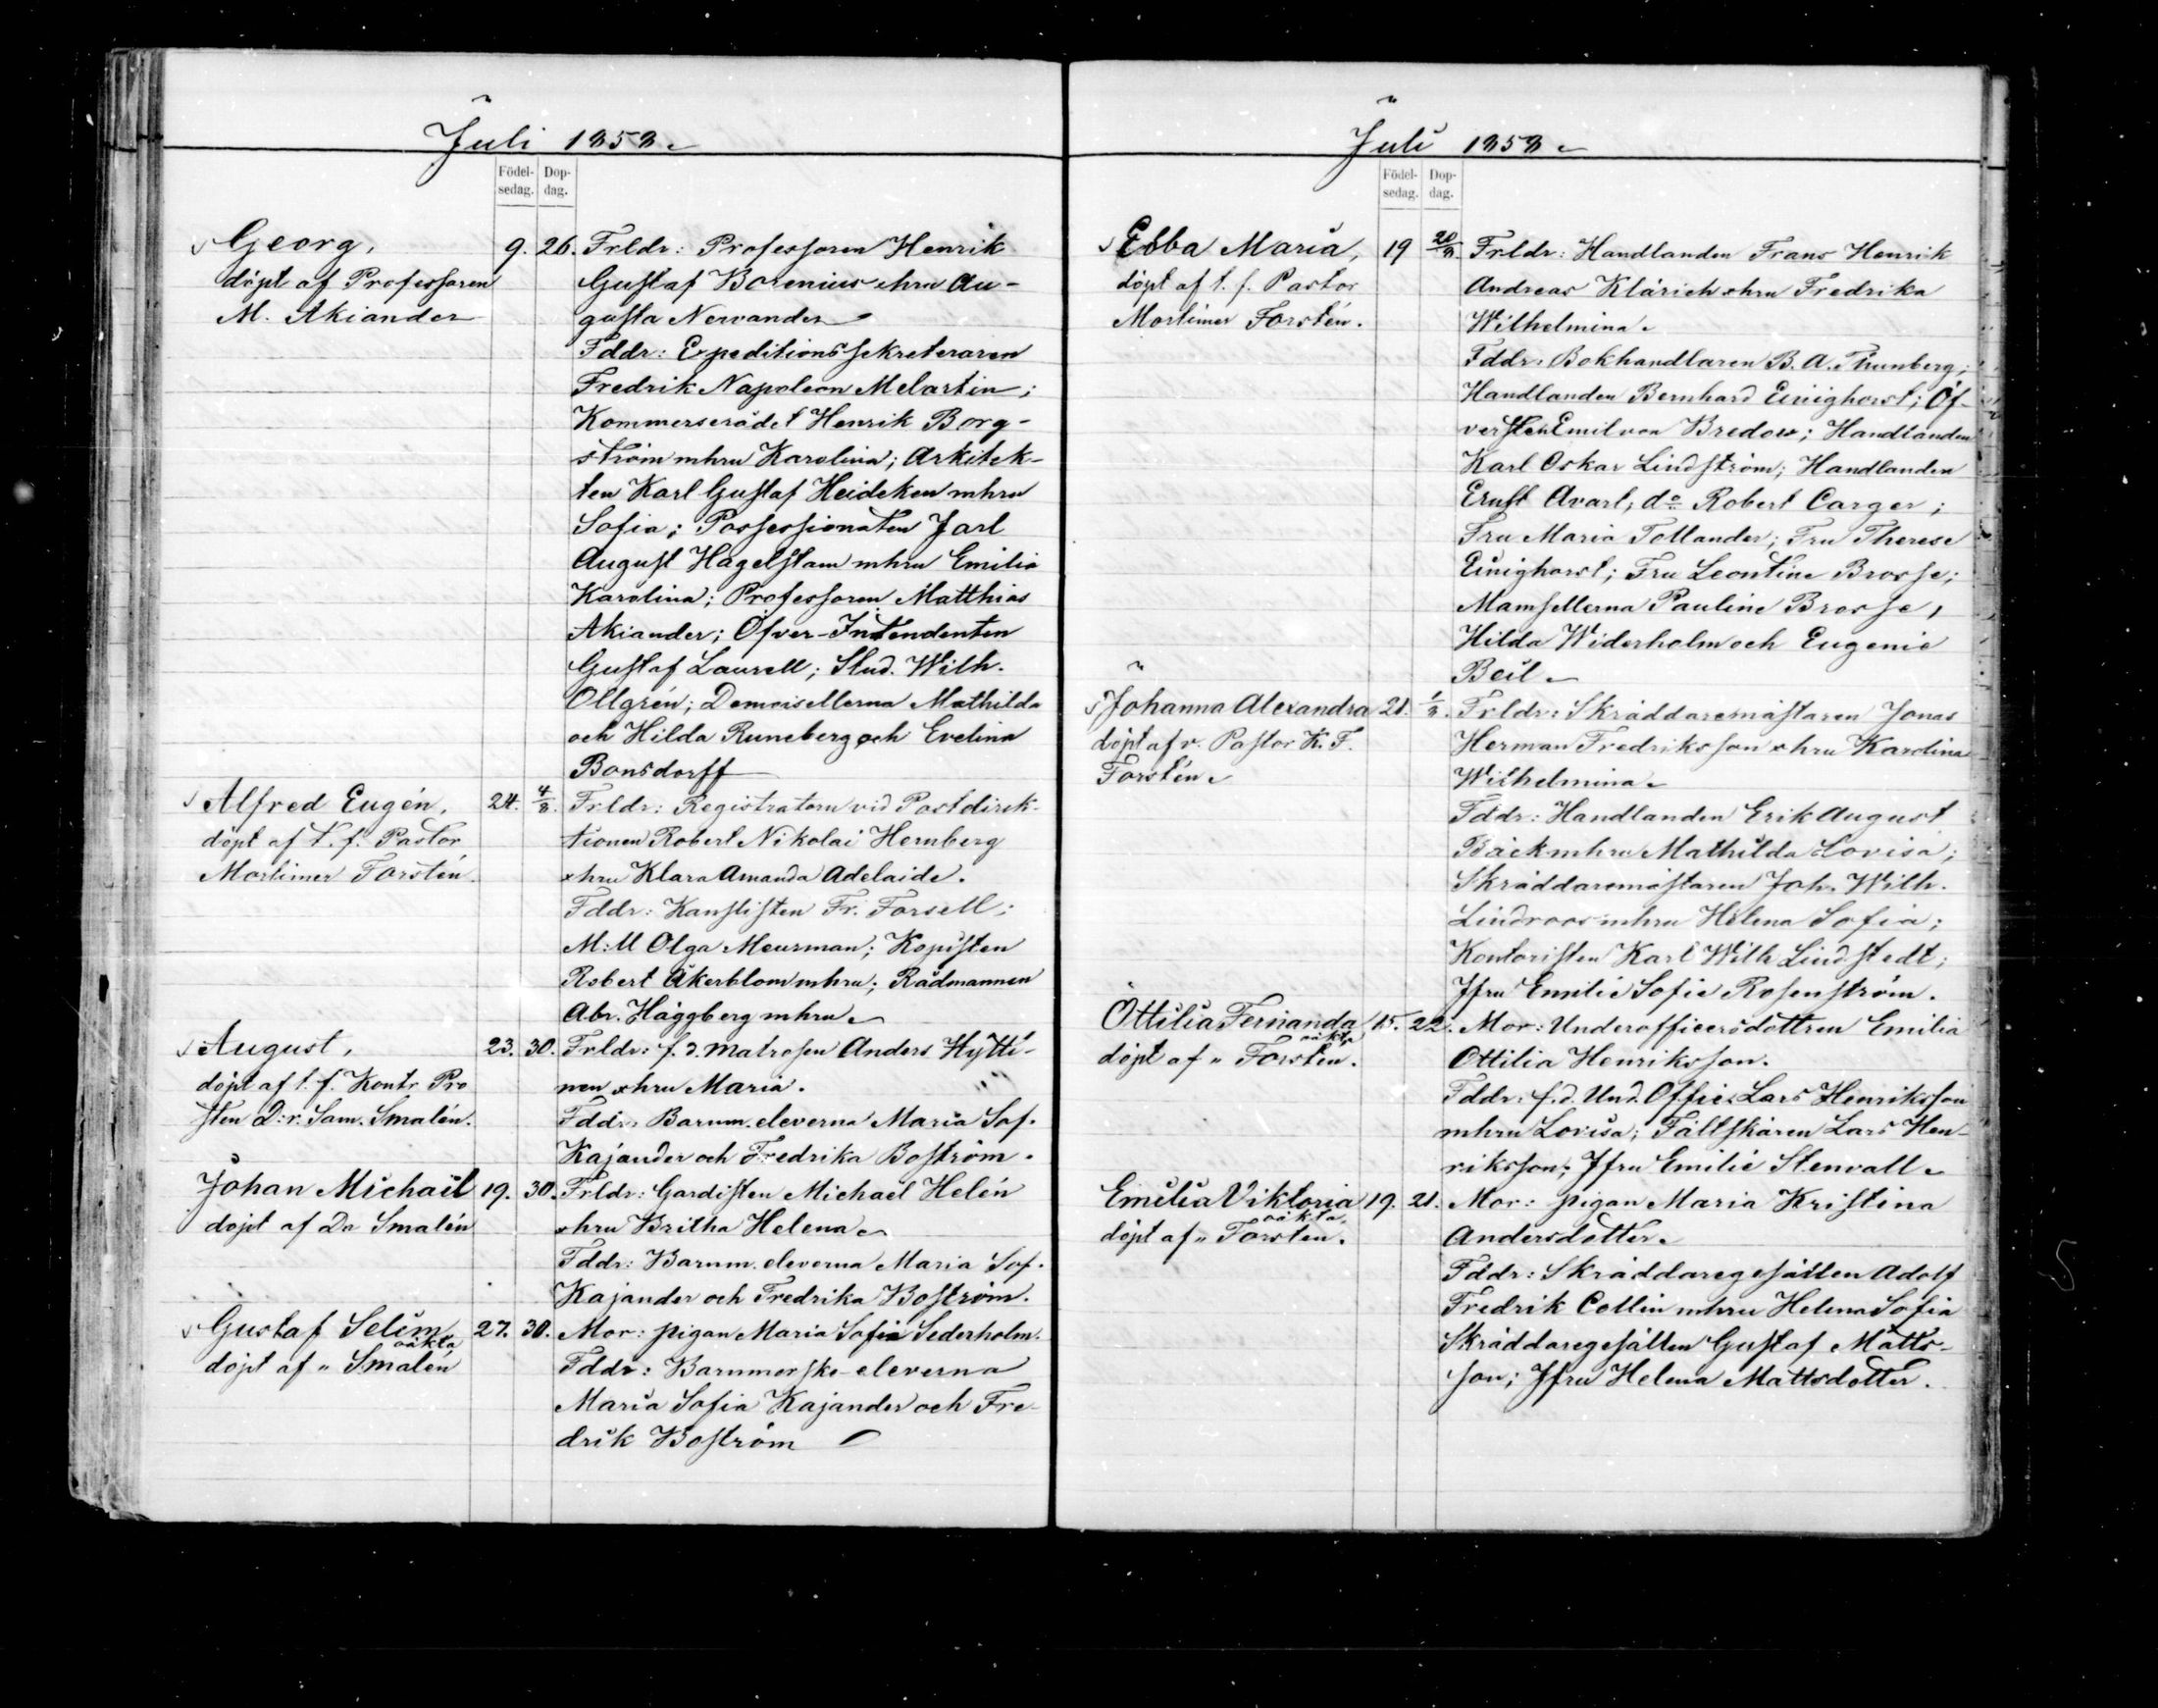 Juli 1858.
Födel-
sedag.
Dop-
dag.
Georg,
döpt af Professoren
M. Akiander
9. 26.
Frldr: Professoren Henrik
Gustaf Borenius o hru Au-
gusta Nervander
Fddr: Expeditionssekreteraren
Fredrik Napoleon Melartin;
Kommerserådet Henrik Borg-
ström mhru Karolina; Arkitek-
ten Karl Gustaf Heideken mhru
Sofia; Possessionaten Jarl
August Hagelstam mhru Emilia
Karolina; Professoren Matthias
Akiander; Öfver-Intendenten
Gustaf Laurell; Stud. Wilh.
Ollgrén; Demoisellerna Mathilda
och Hilda Runeberg och Evelina
Bonsdorff
Alfred Eugén,
döpt af t. f. Pastor
Mortimer Forstén
24. 4/8.
Frldr: Registratorn vid Postdirek-
tionen Robert Nikolai Hernberg
o hru Klara Amanda Adelaide.
Fddr: Kanslisten Fr. Forsell;
M:ll Olga Meurman; Kopisten
Robert Åkerblom mhru; Rådmannen
Abr. Häggberg mhru
August,
döpt af t. f. Kontr. Pro
sten D:r. Sam. Smalén.
23. 30.
Frldr: f. d. Matrosen Anders Hytti-
nen o hru Maria.
Fddr: Barnm. eleverna Maria Sof.
Kajander och Fredrika Boström.
Johan Michaél
döpt af Do Smalén
19. 30.
Frldr: Gardisten Michaél Helén
o hru Britha Helena
Fddr: Barnm. eleverna Maria Sof.
Kajander och Fredrika Boström.
Gustaf Selim,
oäkta,
döpt af " Smalén
27. 30.
Mor: pigan Maria Sofia Sederholm.
Fddr: Barnmorske-eleverna
Maria Sofia Kajander och Fre-
drik Boström
Juli 1858.
Födel-
sedag.
Dop-
dag.
Ebba Maria,
döpt af t. f. Pastor
Mortimer Forstén.
19 20/8.
Frldr: Handlanden Frans Henrik
Andreas Klärich o hru Fredrika
Wilhelmina.
Fddr: Bokhandlaren B. A. Thunberg;
Handlanden Bernhard Einighorst; Öf-
versten Emil von Bredow; Handlanden
Karl Oskar Lindström; Handlanden
Ernst Avart, do Robert Carger;
Fru Maria Tollander; Fru Therese
Einighorst; Fru Leontine Brosse;
Mamsellerna Pauline Brosse,
Hilda Widerholm och Eugenie
Beil
Johanna Alexandra
döpt af v. Pastor K. F.
Forstén
21. 1/8.
Frldr: Skräddaremästaren Jonas
Herman Fredriksson o hru Karolina
Wilhelmina
Fddr: Handlanden Erik August
Bäck mhru Mathilda Lovisa;
Skräddaremästaren Joh. Wilh.
Lindroos mhru Helena Sofia;
Kontoristen Karl Wilh Lindstedt;
Jfru Emilie Sofie Rosenström.
Ottilia Fernanda
oäkta
döpt af " Forstén.
15. 22.
Mor: Underofficersdottren Emilia
Ottilia Henriksson.
Fddr: f. d. Und. Offic. Lars Henriksson
mhru Lovisa; Fältskären Lars Hen-
riksson; Jfru Emilie Stenvall
Emilia Viktoria
oäkta,
döpt af " Forstén.
19. 21.
Mor: pigan Maria Kristina
Andersdotter
Fddr: Skräddaregesällen Adolf
Fredrik Collin mhru Helena Sofia
Skräddaregesällen Gustaf Matts-
son; Jfru Helena Mattsdotter.